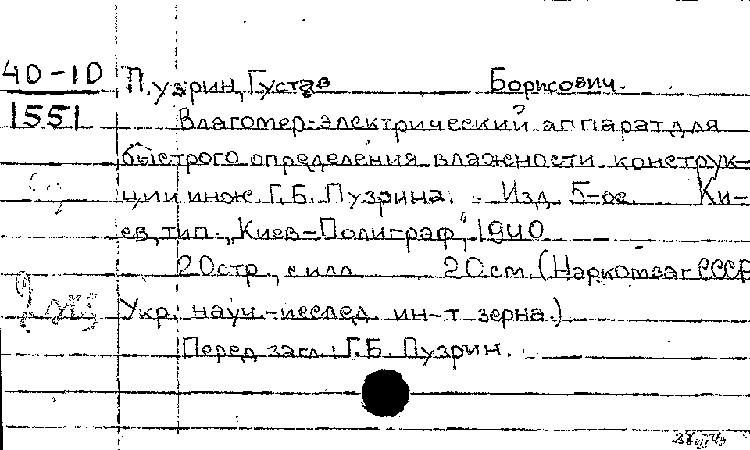 40-10 Пузрин, Густав Борисович.
1551 Влагомер-электрический аппарат для
быстрого определения влажности конструк-
ции инж. Г.Б. Пузрина. Изд. 5-ое. Ки-
ев, тип. „Киев-Полиграф", 1940
20 стр., с илл. 20 см. (Наркомзаг СССР
Укр. науч.-исслед. ин-т зерна.)
Перед загл.: Г.Б. Пузрин.